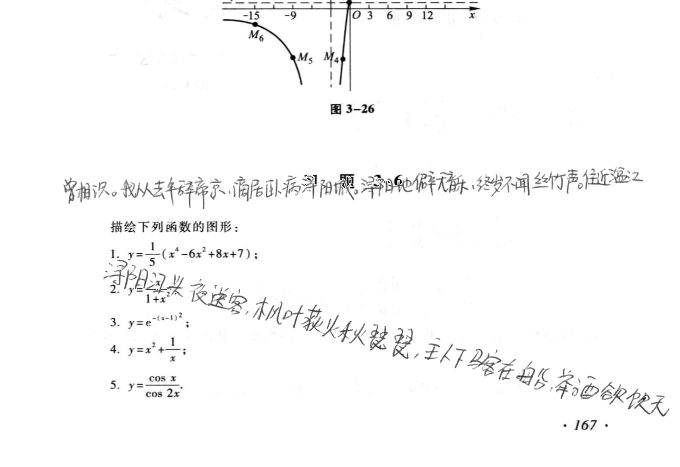 -15 -9 O 3 6 9 12 x
M₆
M₅ M₄
图 3-26
习 题 3-6
曾相识。我从去年辞帝京,谪居卧病浔阳城。浔阳地僻无音乐,终岁不闻丝竹声。住近湓江
描绘下列函数的图形:
1. y=\frac{1}{5}(x⁴-6x²+8x+7);
2. y=\frac{x}{1+x²}
浔阳江头夜送客,枫叶荻火秋瑟瑟,主人下马客在船,举酒欲饮无
3. y=e^{-(x-1)²};
4. y=x²+\frac{1}{x};
5. y=\frac{cos x}{cos 2x}.
· 167 ·